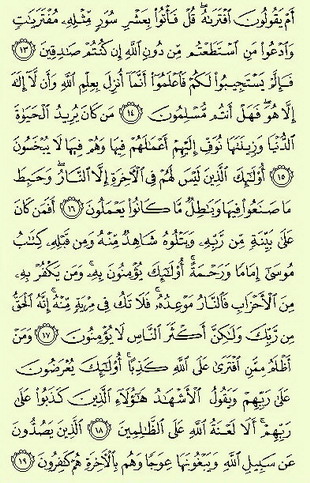 أَمْ يَقُولُونَ ٱفْتَرَىٰهُ ۖ قُلْ فَأْتُوا۟ بِعَشْرِ سُوَرٍ مِّثْلِهِۦ مُفْتَرَيَٰتٍ
وَٱدْعُوا۟ مَنِ ٱسْتَطَعْتُم مِّن دُونِ ٱللَّهِ إِن كُنتُمْ صَٰدِقِينَ ١٣
فَإِلَّمْ يَسْتَجِيبُوا۟ لَكُمْ فَٱعْلَمُوٓا۟ أَنَّمَآ أُنزِلَ بِعِلْمِ ٱللَّهِ وَأَن لَّآ إِلَٰهَ
إِلَّا هُوَ ۖ فَهَلْ أَنتُم مُّسْلِمُونَ ١٤ مَن كَانَ يُرِيدُ ٱلْحَيَوٰةَ
ٱلدُّنْيَا وَزِينَتَهَا نُوَفِّ إِلَيْهِمْ أَعْمَٰلَهُمْ فِيهَا وَهُمْ فِيهَا لَا يُبْخَسُونَ
١٥ أُو۟لَٰٓئِكَ ٱلَّذِينَ لَيْسَ لَهُمْ فِى ٱلْءَاخِرَةِ إِلَّا ٱلنَّارُ ۖ وَحَبِطَ
مَا صَنَعُوا۟ فِيهَا وَبَٰطِلٌ مَّا كَانُوا۟ يَعْمَلُونَ ١٦ أَفَمَن كَانَ
عَلَىٰ بَيِّنَةٍ مِّن رَّبِّهِۦ وَيَتْلُوهُ شَاهِدٌ مِّنْهُ وَمِن قَبْلِهِۦ كِتَٰبُ
مُوسَىٰٓ إِمَامًا وَرَحْمَةً ۚ أُو۟لَٰٓئِكَ يُؤْمِنُونَ بِهِۦ ۚ وَمَن يَكْفُرْ بِهِۦ
مِنَ ٱلْأَحْزَابِ فَٱلنَّارُ مَوْعِدُهُۥ ۚ فَلَا تَكُ فِى مِرْيَةٍ مِّنْهُ ۚ إِنَّهُ ٱلْحَقُّ
مِن رَّبِّكَ وَلَٰكِنَّ أَكْثَرَ ٱلنَّاسِ لَا يُؤْمِنُونَ ١٧ وَمَنْ
أَظْلَمُ مِمَّنِ ٱفْتَرَىٰ عَلَى ٱللَّهِ كَذِبًا ۚ أُو۟لَٰٓئِكَ يُعْرَضُونَ
عَلَىٰ رَبِّهِمْ وَيَقُولُ ٱلْأَشْهَٰدُ هَٰٓؤُلَآءِ ٱلَّذِينَ كَذَبُوا۟ عَلَىٰ
رَبِّهِمْ ۚ أَلَا لَعْنَةُ ٱللَّهِ عَلَى ٱلظَّٰلِمِينَ ١٨ ٱلَّذِينَ يَصُدُّونَ
عَن سَبِيلِ ٱللَّهِ وَيَبْغُونَهَا عِوَجًا وَهُم بِٱلْءَاخِرَةِ هُمْ كَٰفِرُونَ ١٩